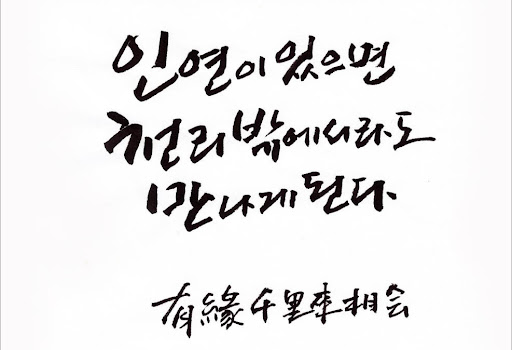 인연이 있으면
천리 밖에서라도
만나게 된다.
有緣千里來相会